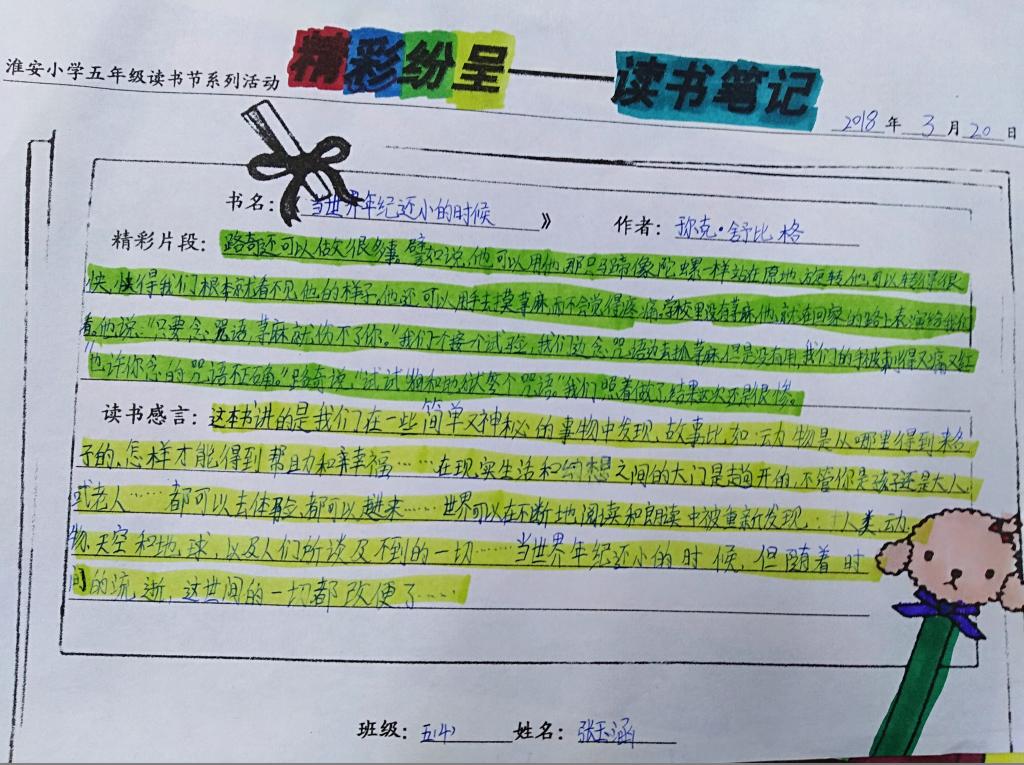 淮安小学五年级读书节系列活动
精彩纷呈——读书笔记
2018年3月20日
书名：《当世界年纪还小的时候》 作者：弥克·舒比格
精彩片段：路奇还可以做欠很多事，譬如说，他可以用他那只马蹄像陀螺一样站在原地旋转，他可以转得很
快，快得我们根本就看不见他的样子，他还可以用手去摸荨麻而不会觉得疼痛。学校里没有荨麻，他就在回家的路上表演给我们
看，他说："只要念咒语，荨麻就伤不了你。"我们一个接一个试验，我们边念咒语边去抓荨麻，但是没有用，我们的手被刺得又痛又红
"也许你念的咒语不正确。"路奇说，"试试狗和地狱这个咒语"我们照着做了，结果这次还是很惨。
读书感言：这本书讲的是我们在一些简单又神秘的事物中发现，故事比如动物是从哪里得到来格
子的、怎样才能得到帮助和幸福……在现实生活和幻想之间的大门是敞开的，不管你是孩子还是大人
或老人……都可以去体验，都可以越来……世界可以在不断地阅读和朗读中被重新发现：人类、动
物、天空和地球，以及人们所谈及不到的一切……当世界年纪还小的时候，但随着时
间的流逝，这世间的一切都改便了……
班级：五(4) 姓名：张玉涵